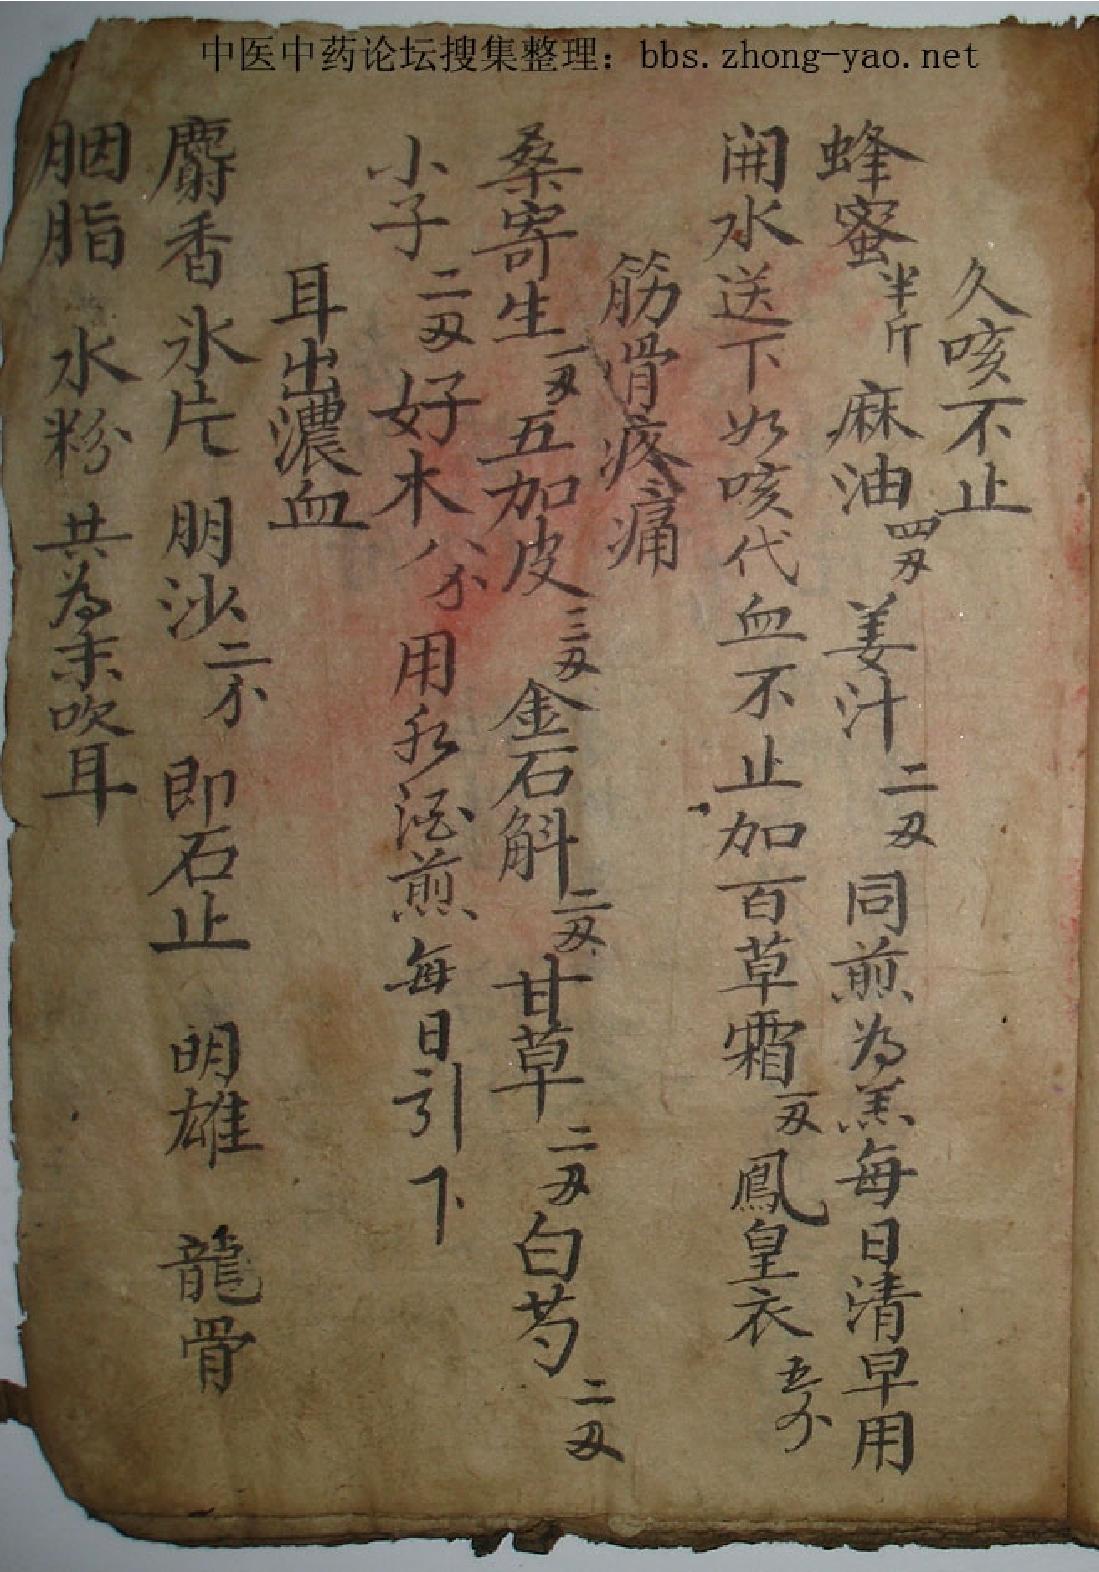 中医中药论坛搜集整理：bbs.zhong-yao.net
久咳不止
蜂蜜半斤 麻油四刄 姜汁二刄 同煎為羔每日清早用
開水送下如咳代血不止加百草霜一刄 鳳皇衣五分
筋骨疼痛
桑寄生一刄五加皮三刄金石斛二刄甘草二刄白芍二刄
小子二刄好木八分用水酒煎每日引下
耳出濃血
麝香 氷片 明沙二分 即石止 明雄 龍骨
胭脂 水粉 共為末吹耳